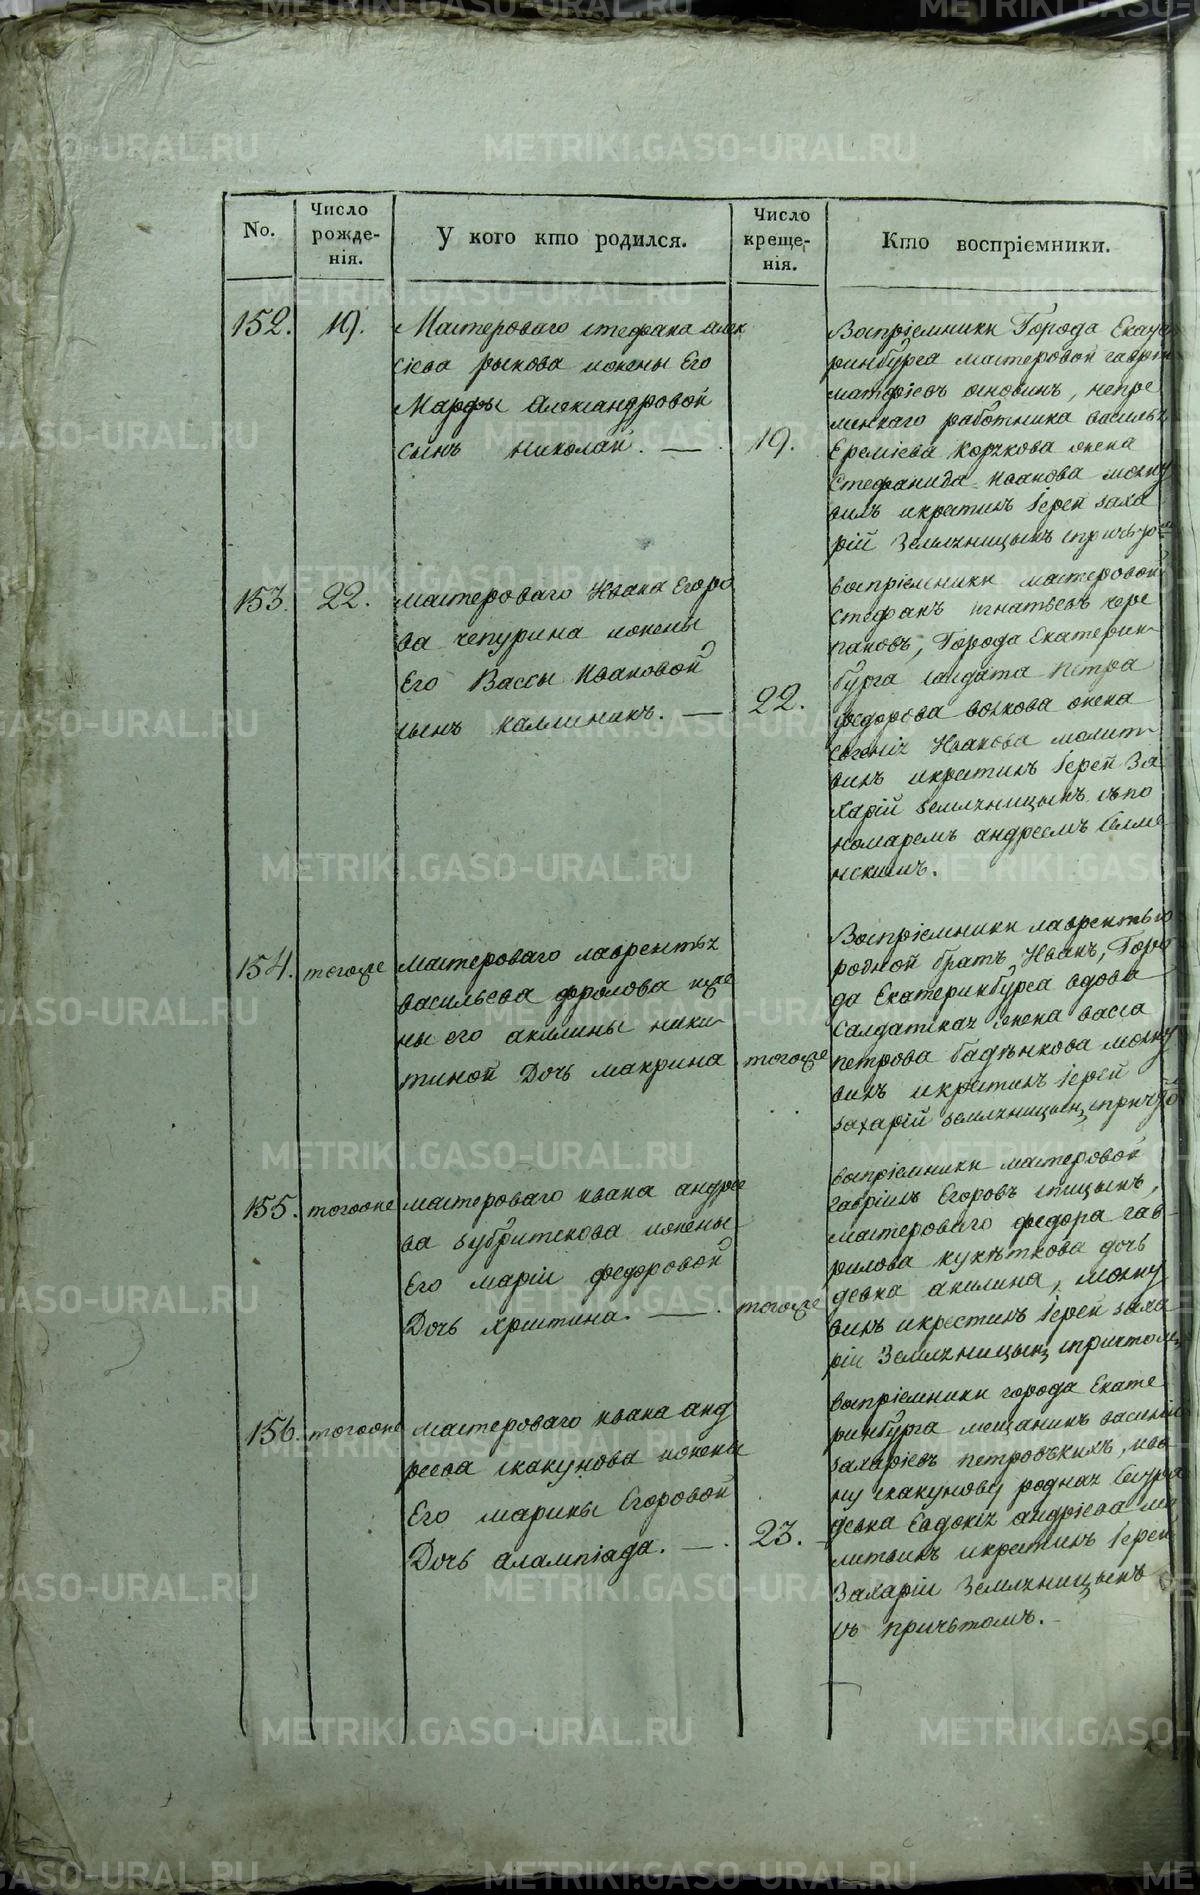 No.
Число рожде-нія.
У кого кто родился.
Число креще-нія.
Кто воспріемники.
152.
19.
Мастероваго стефана алек
сіева рыкова ижены Его
Марфы Александровой
сынъ николай.
19.
Воспріемники Города Екате
ринбурга мастеровой гавріи
матфіевъ основинъ, непре
мѣннаго работника василья
Ереміева корякова жена
Стефанида Иванова молит
вилъ икрестилъ іерей заха
рій Земляницынъ
153.
22.
мастероваго Ивана Егоро
ва чепурина ижены
Его Вассы Ивановой
сынъ каллиникъ.
22.
воспріемники мастеровой
стефанъ игнатьевъ чере
пановъ, Города Екатерин
бурга салдата петра
федорова волкова жена
евгенія Иванова молит
вилъ икрестилъ іерей За
харій земляницынъ съпо
номаремъ андреемъ
нскимъ.
154.
тогоже
мастероваго лаврентья
васильева фролова иже
ны его акилины ники
тиной Дочь макрина
тогоже
Воспріемники лаврентью
родной братъ Иванъ, Горо
да Екатеринбурга вдова
Салдатская жена васса
петрова молит
вилъ икрестилъ іерей
захарій земляницын
155.
тогоже
мастероваго ивана андрее
ва зубрицкова ижены
Его маріи федоровой
Дочь христина.
тогоже
воспріемники мастеровой
гавріилъ Егоровъ спицынъ,
мастероваго федора гав
рилова дочь
девка акилина, молит
вилъ икрестилъ іерей заха
рій Земляницын спричтом
156.
тогоже
мастероваго ивана анд
реева скакунова ижены
Его марины Егоровой
Дочь алампіада.
23.
воспріемники города Екате
ринбурга мещанинъ василий
захаріевъ петровскихъ, ива
ну скакунову родная Сестра
девка Евдокія андріева мо
литвилъ икрестилъ іерей
Захарій Земляницынъ
съ причьтомъ.
METRIKI.GASO-URAL.RU